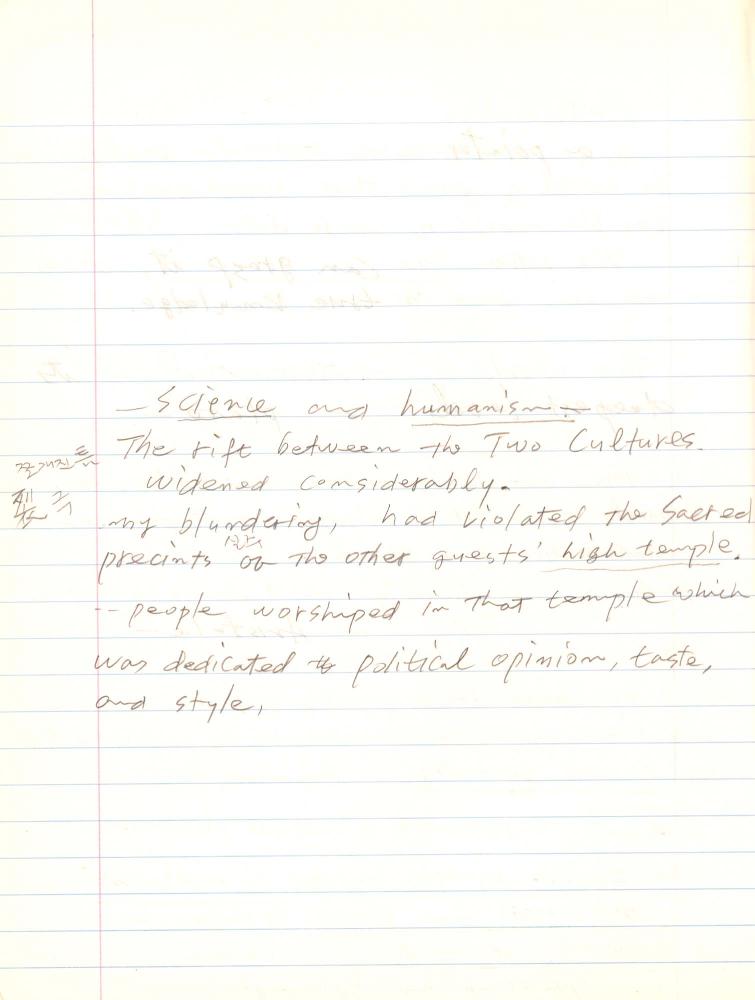 — Science and humanism —
The rift between the Two Cultures.
widened considerably.
my blundering, had violated the Sacred
precints of the other guests' high temple.
-- people worshiped in that temple which
was dedicated to political opinion, taste,
and style,